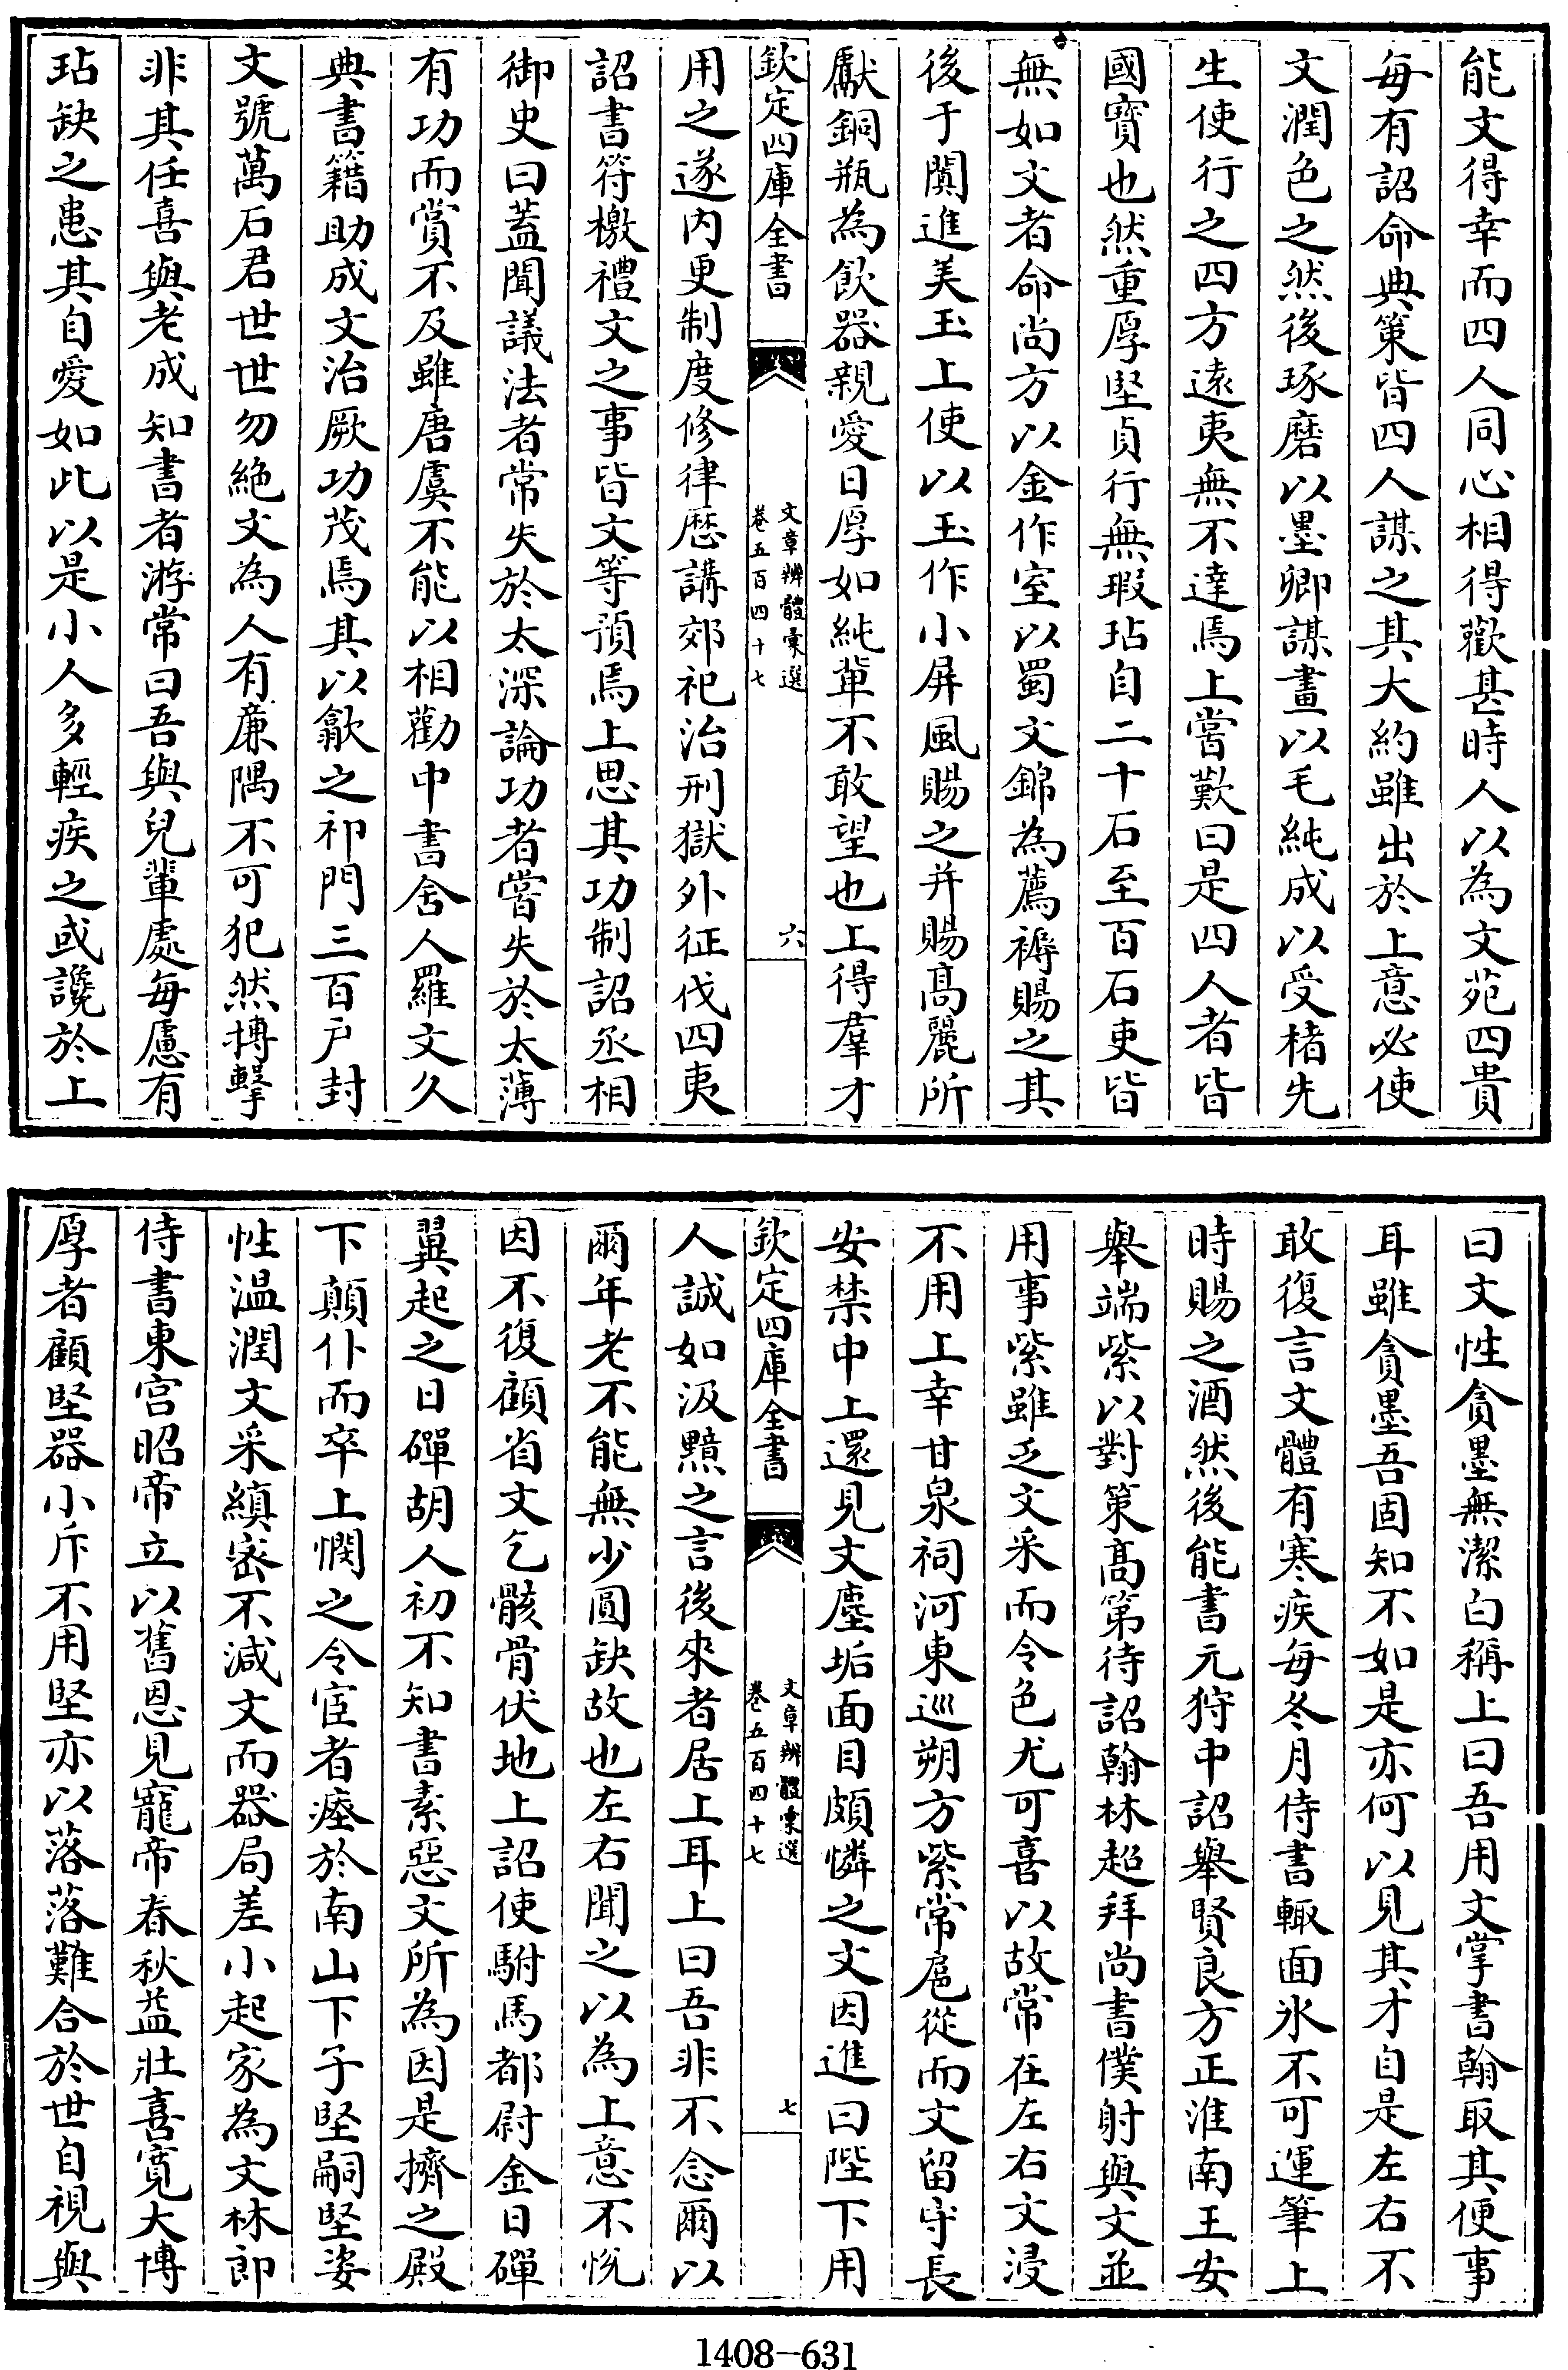 能文得幸而四人同心相得歡甚時人以為文苑四貴
每有詔命典策皆四人謀之其大約雖出於上意必使
文潤色之然後琢磨以墨卿謀畫以毛純成以受楮先
生使行之四方遠夷無不達焉上嘗歎曰是四人者皆
國寶也然重厚堅貞行無瑕玷自二十石至百石吏皆
無如文者命尚方以金作室以蜀文錦為薦褥賜之其
後于闐進美玉上使以玉作小屏風賜之并賜高麗所
獻銅瓶為飲器親愛日厚如純輩不敢望也上得羣才
欽定四庫全書
文章辨體彙選
卷五百四十七
六
用之遂内更制度修律厯講郊祀治刑獄外征伐四夷
詔書符檄禮文之事皆文等預焉上思其功制詔丞相
御史曰蓋聞議法者常失於太深論功者嘗失於太薄
有功而賞不及雖唐虞不能以相勸中書舍人羅文久
典書籍助成文治厥功茂焉其以歙之祁門三百户封
文號萬石君世世勿絶文為人有廉隅不可犯然搏擊
非其任喜與老成知書者游常曰吾與兒輩處每慮有
玷缺之患其自愛如此以是小人多輕疾之或讒於上
曰文性貪墨無潔白稱上曰吾用文掌書翰取其便事
耳雖貪墨吾固知不如是亦何以見其才自是左右不
敢復言文體有寒疾每冬月侍書輙面氷不可運筆上
時賜之酒然後能書元狩中詔舉賢良方正淮南王安
舉端紫以對策高第待詔翰林超拜尚書僕射與文並
用事紫雖乏文采而令色尤可喜以故常在左右文浸
不用上幸甘泉祠河東巡朔方紫常扈從而文留守長
安禁中上還見文塵垢面目頗憐之文因進曰陛下用
欽定四庫全書
文章辨體彙選
卷五百四十七
七
人誠如汲黯之言後來者居上耳上曰吾非不念爾以
爾年老不能無少圓缺故也左右聞之以為上意不悅
因不復顧省文乞骸骨伏地上詔使駙馬都尉金日磾
翼起之日磾胡人初不知書素惡文所為因是擠之殿
下顛仆而卒上憫之令宦者瘞於南山下子堅嗣堅姿
性温潤文采縝密不減文而器局差小起家為文林郎
侍書東宫昭帝立以舊恩見寵帝春秋益壯喜寬大博
厚者顧堅器小斥不用堅亦以落落難合於世自視與
1408-631